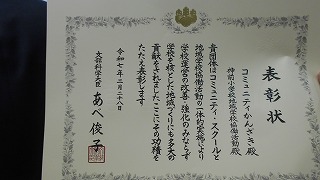 表彰状
コミュニティかんざき殿
神前小学校地域学校協働活動殿
貴団体はコミュニティ・スクールと
地域学校協働活動の一体的実施により
学校運営の改善・強化のみならず
学校を核とした地域づくりにも多大の
貢献をされましたここにその功績を
たたえ表彰します
令和七年二月二十八日
文部科学大臣 あべ俊子